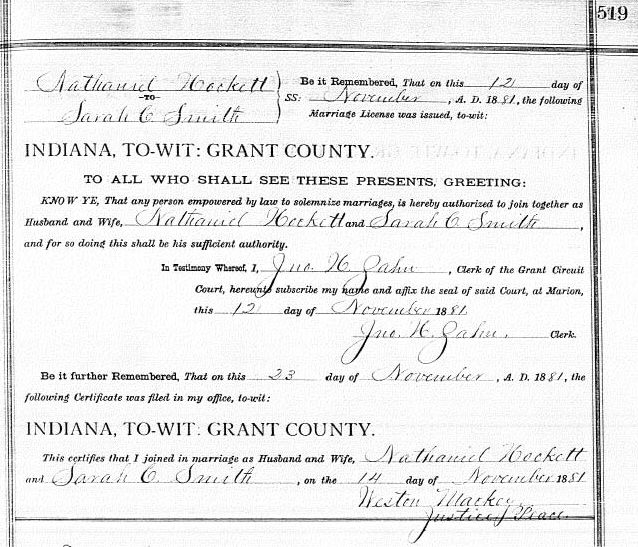 519
Nathaniel Hockett
-TO-
Sarah C Smith
Be it Remembered, That on this 12 day of
SS: November, A. D. 1881, the following
Marriage License was issued, to-wit:
INDIANA, TO-WIT: GRANT COUNTY.
TO ALL WHO SHALL SEE THESE PRESENTS, GREETING:
KNOW YE, That any person empowered by law to solemnize marriages, is hereby authorized to join together as
Husband and Wife, Nathaniel Hockett and Sarah C Smith,
and for so doing this shall be his sufficient authority.
In Testimony Whereof, I, Jno. H Zahn, Clerk of the Grant Circuit
Court, hereunto subscribe my name and affix the seal of said Court, at Marion,
this 12 day of November 1881
Jno. H. Zahn. Clerk.
Be it further Remembered, That on this 23 day of November, A. D. 1881, the
following Certificate was filed in my office, to-wit:
INDIANA, TO-WIT: GRANT COUNTY.
This certifies that I joined in marriage as Husband and Wife, Nathaniel Hockett
and Sarah C. Smith, on the 14 day of November 1881
Weston Mackey,
Justice Peace.